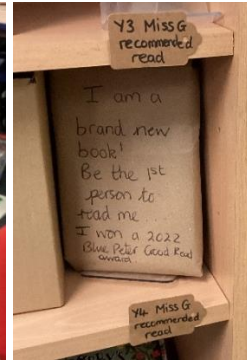 Y3 Miss G
recommended
read
I am a
brand new
book!
Be the 1st
person to
read me ...
I won a 2022
Blue Peter Good Read
award.
Y4 Miss G
recommended
read